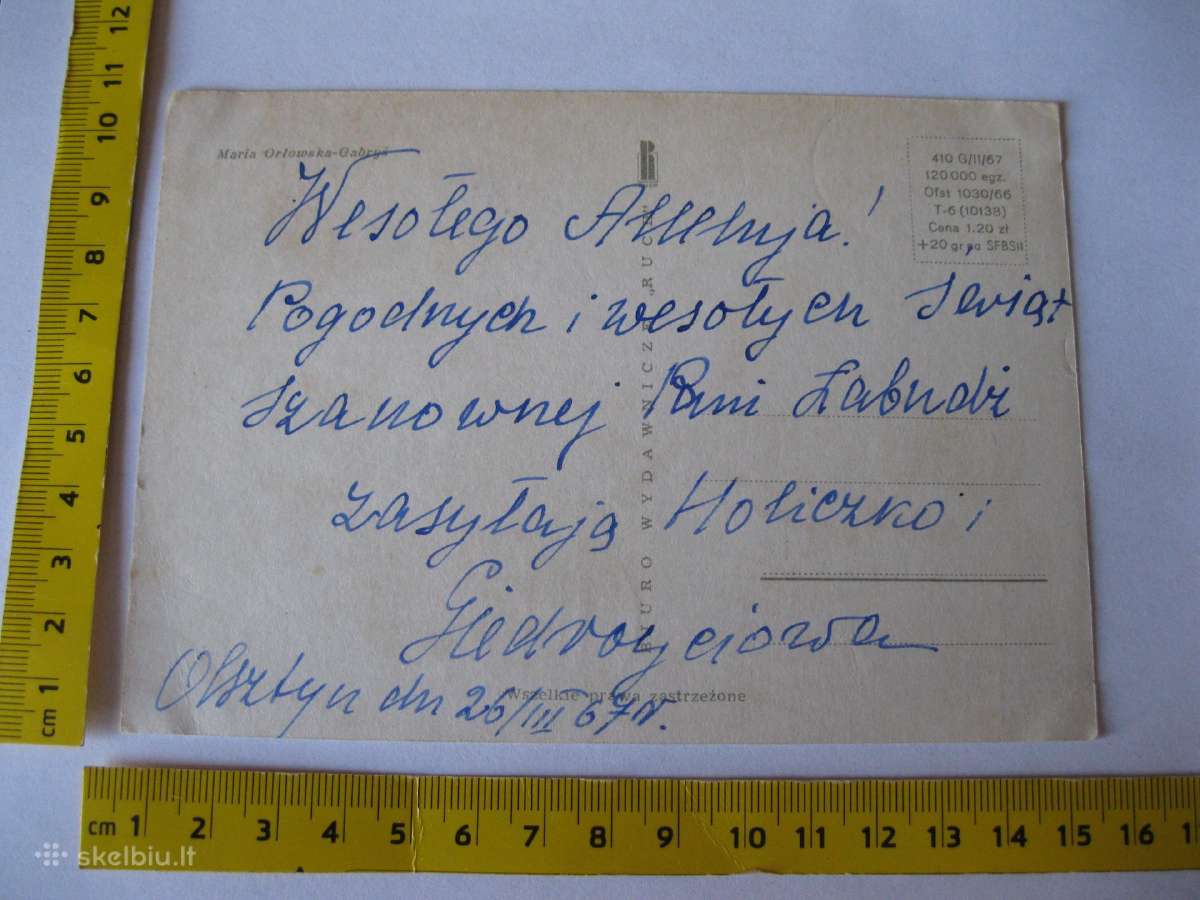 Maria Orłowska-Gabryś
410 G/II/67
120 000 egz.
Ofst 1030/66
T-6 (10138)
Cena 1.20 zł
+20 gr na SFBSiI
Wesołego Alleluja!
Pogodnych i wesołych Świąt
Szanownej Pani Łabudź
zasyłają Holiczko i
Giedroyciowa
Olsztyn dn 26/III 67 r.
BIURO WYDAWNICZE „RUCH"
Wszelkie prawa zastrzeżone
12 11 10 9 8 7 6 5 4 3 2 1 cm
cm 1 2 3 4 5 6 7 8 9 10 11 12 13 14 15 16 1
skelbiu.lt